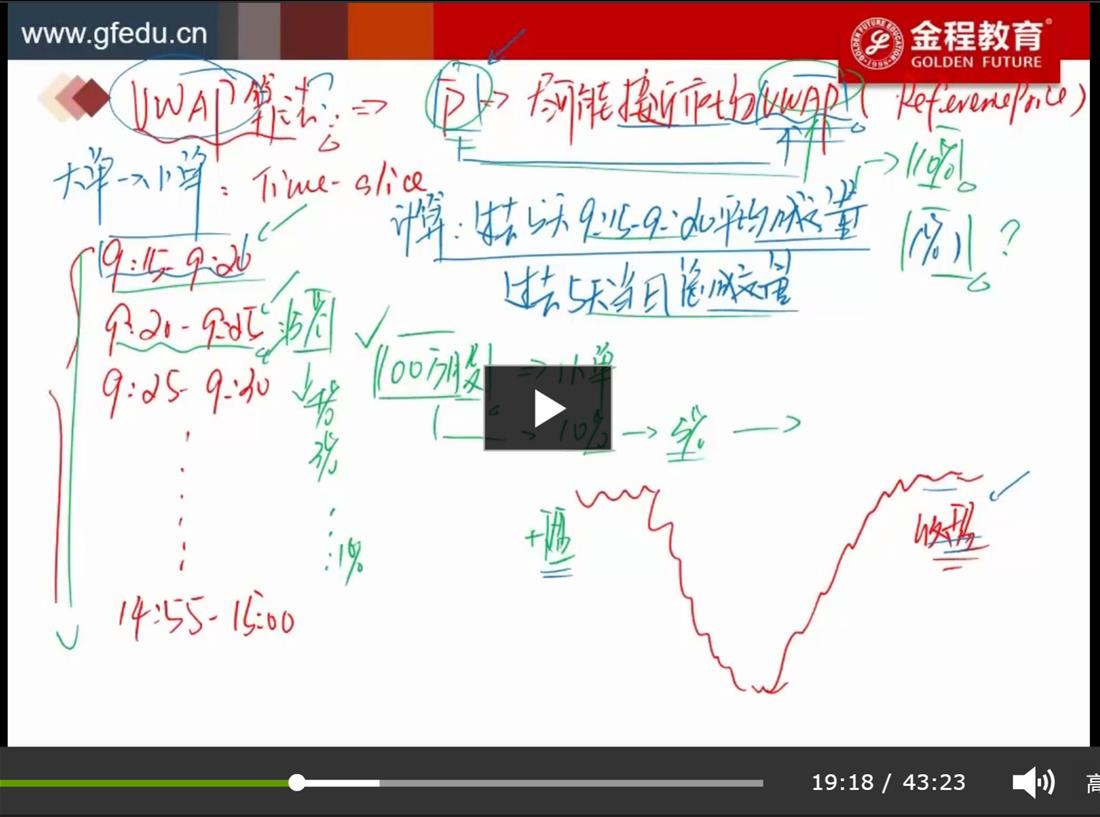 www.gfedu.cn
金程教育
GOLDEN FUTURE
VWAP 算法 => P => 尽可能接近市场的VWAP (Reference Price)
大单→小单: Time-slice
计算: 过去5天9:15-9:20平均成交量
过去5天当日总成交量
10%
1%
?
9:15-9:20
9:20-9:25
9:25-9:30
3%
1%
100万股 => 小单
10% → 5% →
开盘
收盘
14:55-15:00
19:18 / 43:23
高